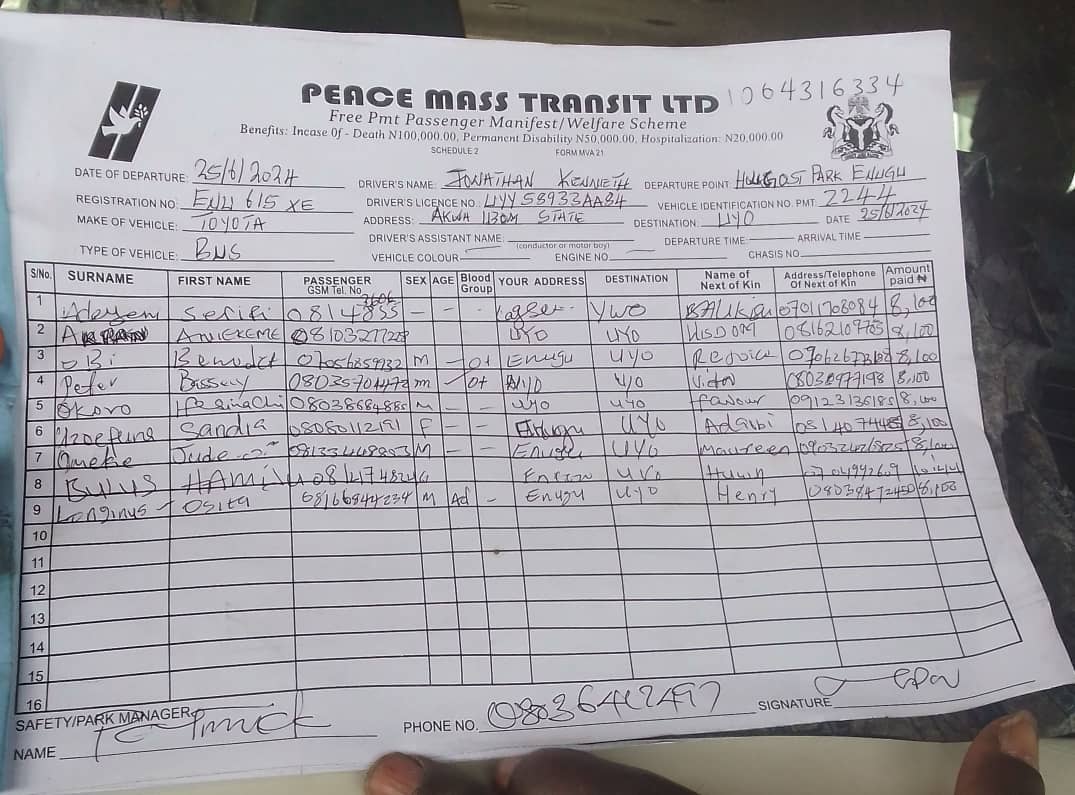 PEACE MASS TRANSIT LTD 1064316334
Free Pmt Passenger Manifest/Welfare Scheme
Benefits: Incase Of - Death N100,000.00, Permanent Disability N50,000.00, Hospitalization: N20,000.00
SCHEDULE 2 FORM MVA 21
DATE OF DEPARTURE: 25/6/2024 DRIVER'S NAME: JONATHAN KENNETH DEPARTURE POINT: PARK ENUGU
REGISTRATION NO. ENU 615 XE DRIVER'S LICENCE NO. UYY58933AA84 VEHICLE IDENTIFICATION NO. PMT: 2244
MAKE OF VEHICLE: TOYOTA ADDRESS: AKWA IBOM STATE DESTINATION: UYO DATE 25/6/2024
TYPE OF VEHICLE: BUS DRIVER'S ASSISTANT NAME: (conductor or motor boy) DEPARTURE TIME: ARRIVAL TIME
VEHICLE COLOUR ENGINE NO. CHASIS NO.
S/No. SURNAME FIRST NAME PASSENGER GSM Tel. No SEX AGE Blood Group YOUR ADDRESS DESTINATION Name of Next of Kin Address/Telephone Of Next of Kin Amount paid ₦
1 - - - 07011708084 8,100
2 ANIEKEME UYO UYO WISDOM 8,100
3 OBi 07056859932 M - O+ Enugu UYO Rejoice 8,100
4 Peter Bassey 08035704472 m - O+ UYO Victor 08030977198 8,100
5 Okoro Ifesinachi 08038684885 M - - UYO UYO Favour 8,100
6 Sandra 08080112191 F - - Enugu UYO 8,100
7 Omeke Jude M - - Enugu UYO Maureen 8,100
8 BULUS UYO
9 Longinus - Osita 08166844234 M Ad - Enugu Uyo Henry 08038472450 8,100
10
11
12
13
14
15
16
SAFETY/PARK MANAGER
NAME PHONE NO. SIGNATURE